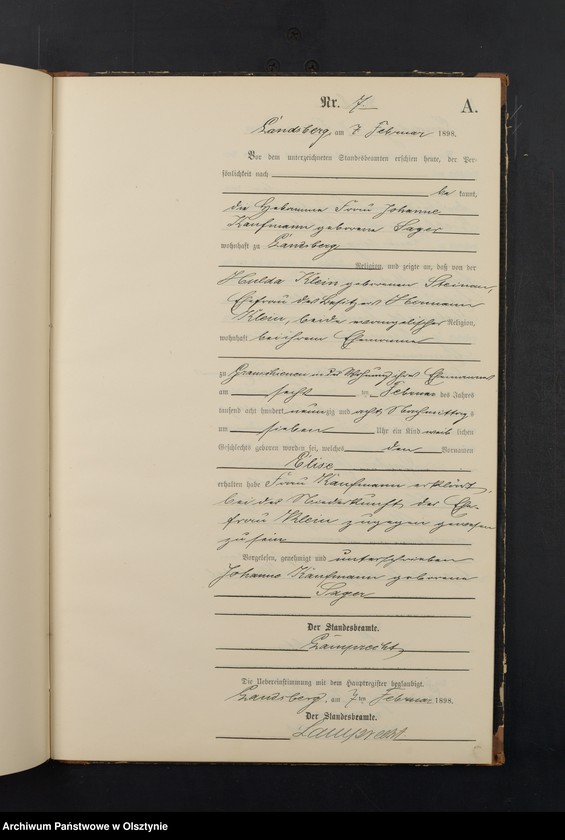 Nr. 7
A.
Landsberg, am 7 Februar 1898.
Vor dem unterzeichneten Standesbeamten erschien heute, der Per-
sönlichkeit nach
be kannt,
die Hebamme Frau Johanne
Kaufmann geborene Sager
wohnhaft zu Landsberg
Religion, und zeigte an, daß von der
Hulda Klein geborenen
Ehefrau des Besitzers Hermann
Klein, beide evangelischer Religion,
wohnhaft bei ihrem Ehemanne
zu in der Wohnung ihres Ehemannes
am sechs ten Februar des Jahres
tausend acht hundert neunzig und acht Nachmittags
um sieben Uhr ein Kind weib lichen
Geschlechts geboren worden sei, welches den Vornamen
Elise
erhalten habe Frau Kaufmann erklärt,
bei der Niederkunft der Ehe-
frau Klein zugegen gewesen
zu sein
Vorgelesen, genehmigt und unterschrieben
Johanne Kaufmann geborene
Sager
Der Standesbeamte.
Lamprecht
Die Uebereinstimmung mit dem Hauptregister beglaubigt.
Landsberg, am 7ten Februar 1898.
Der Standesbeamte.
Lamprecht
Archiwum Państwowe w Olsztynie